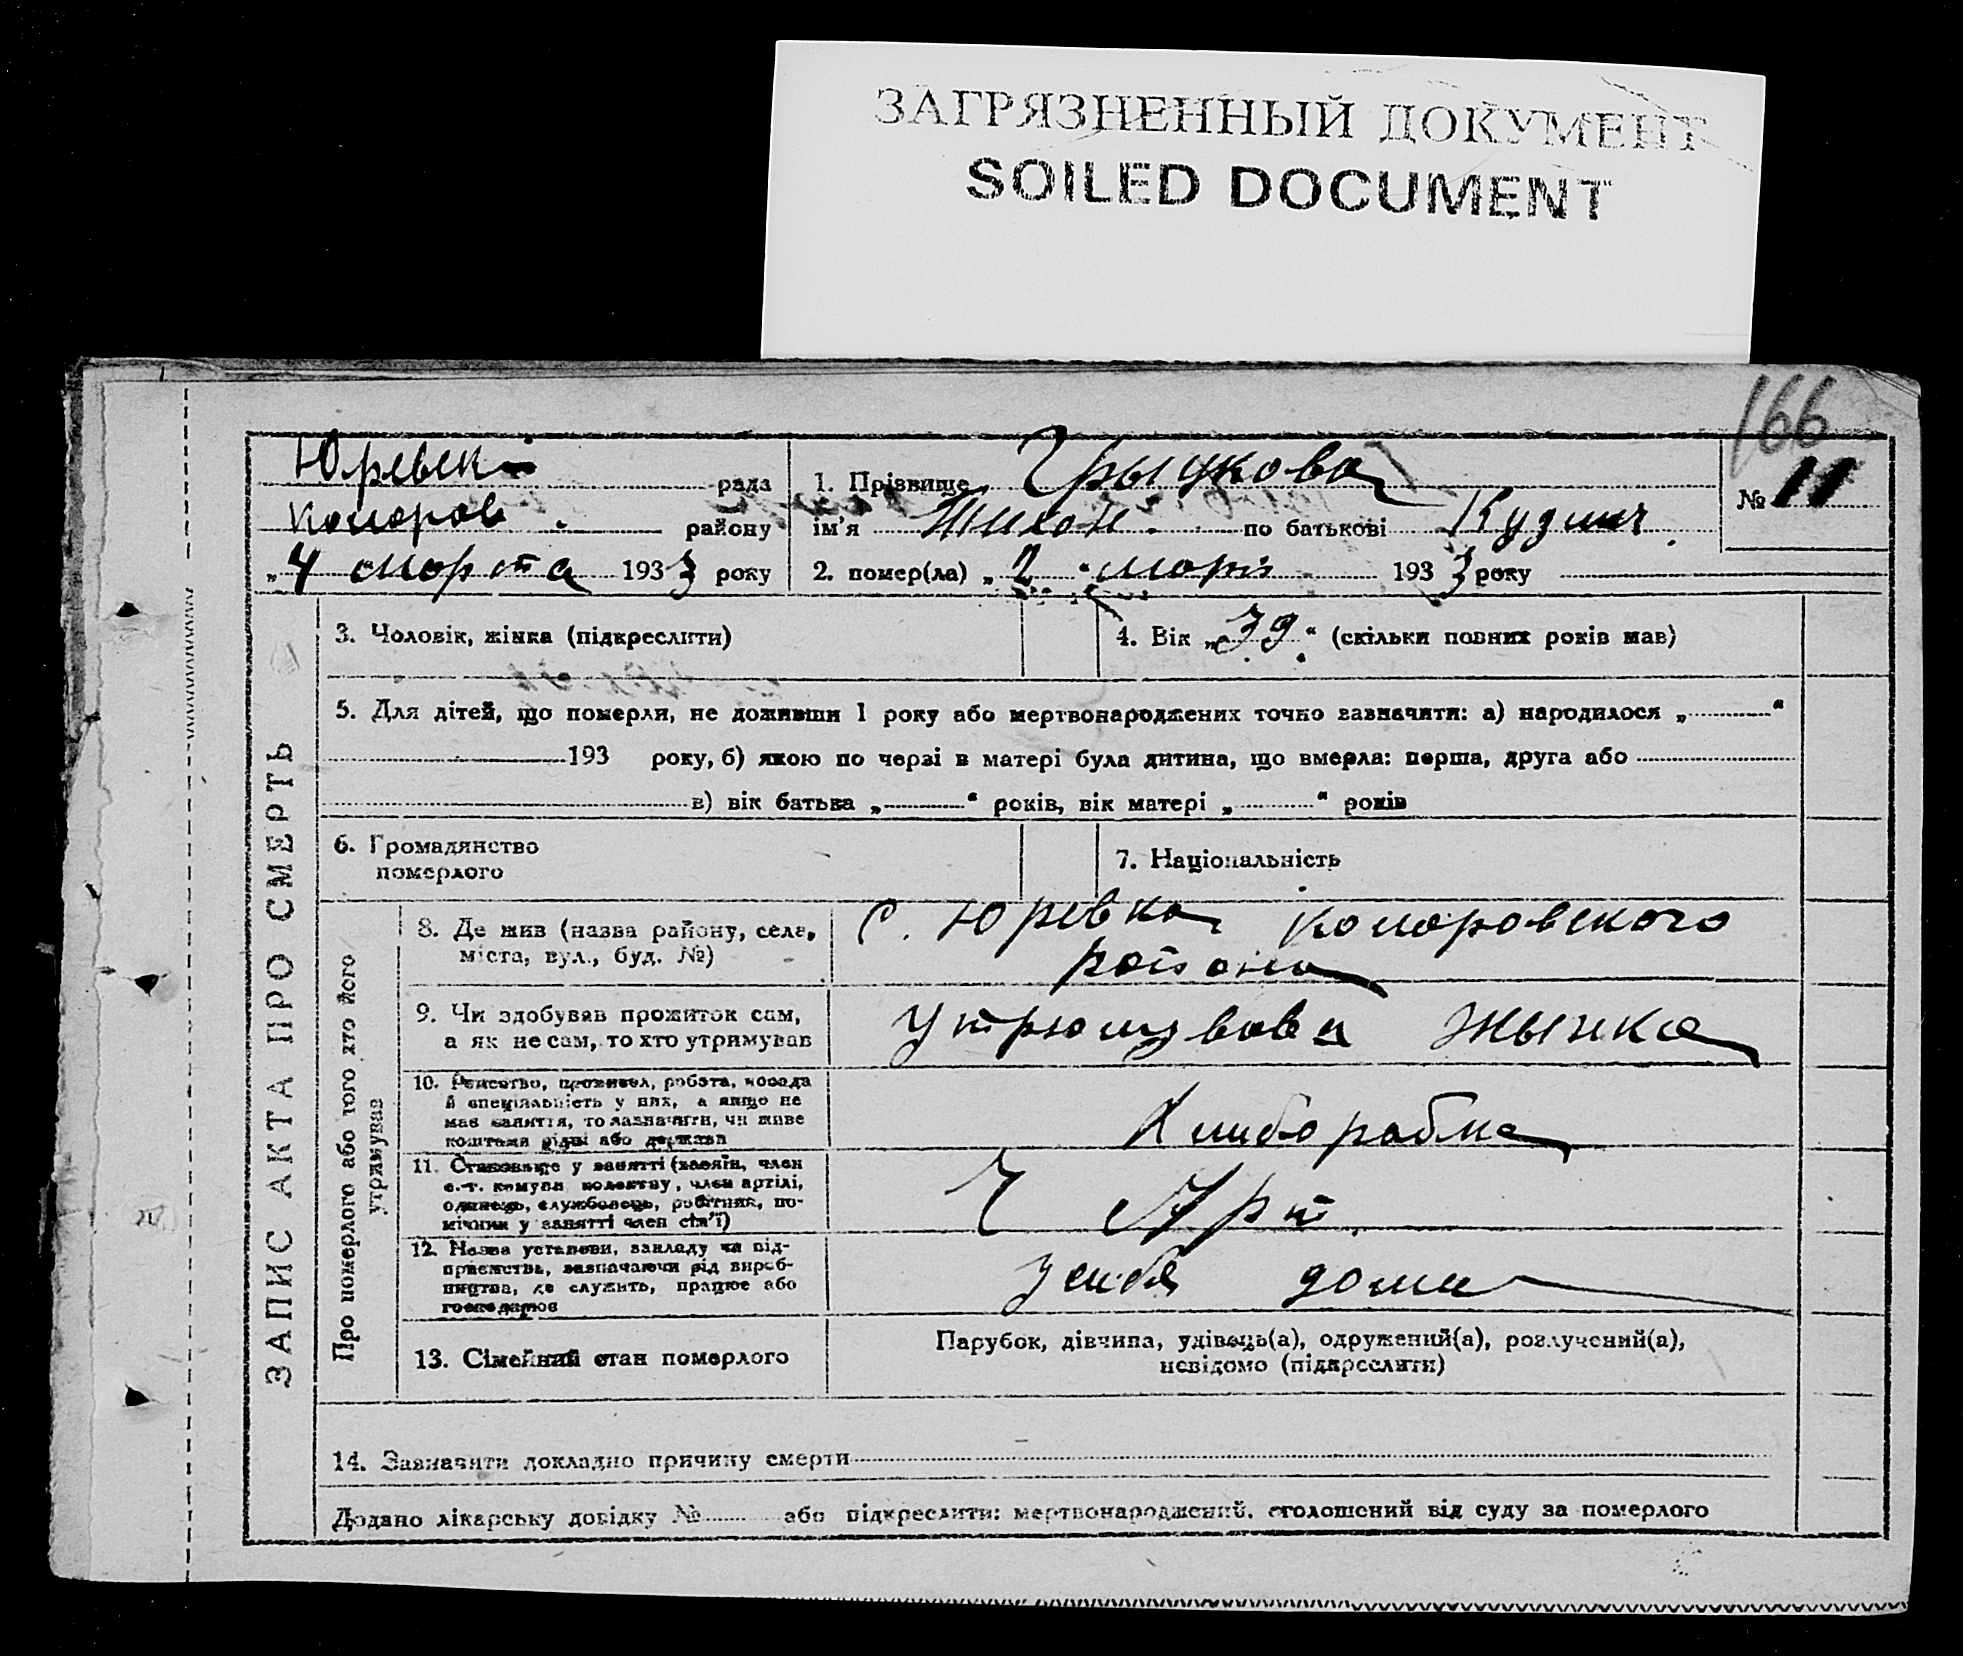 ЗАГРЯЗНЕННЫЙ ДОКУМЕНТ
SOILED DOCUMENT
166
Юревск рада
Комаров району
„4 марта 1933 року
1. Прізвище Грыцкова
ім'я Тихон по батькові Кузмич
2. помер(ла) „2" март 1933 року
№ 11
ЗАПИС АКТА ПРО СМЕРТЬ
3. Чоловік, жінка (підкреслити)
4. Вік „39" (скільки повних років мав)
5. Для дітей, що померли, не доживши 1 року або мертвонароджених точно зазначити: а) народилося „ "
193 року, б) якою по черзі в матері була дитина, що вмерла: перша, друга або
в) вік батька „ " років, вік матері „ " років
6. Громадянство
померлого
7. Національність
Про померлого або того хто його
утримував
8. Де жив (назва району, села,
міста, вул., буд. №)
с. Юревка Комаровского
района
9. Чи здобував прожиток сам,
а як не сам, то хто утримував
жынка
10. Ремество, промисел, робота, посада
й спеціяльність у них, а якщо не
має заняття, то зазначити, чи живе
коштами рідні або держави
11. Становище у занятті (хазяїн, член
с.-г. комуни, колективу, член артілі,
одинець, службовець, робітник, по-
мічник у занятті член сім'ї)
Ч Арт
12. Назва установи, закладу чи під-
приємства, зазначаючи рід вироб-
ництва, де служить, працює або
господарює
у себя дома
13. Сімейний стан померлого
Парубок, дівчина, удівець(а), одружений(а), розлучений(а),
невідомо (підкреслити)
14. Зазначити докладно причину смерти
Додано лікарську довідку № або підкреслити: мертвонароджений, оголошений від суду за померлого